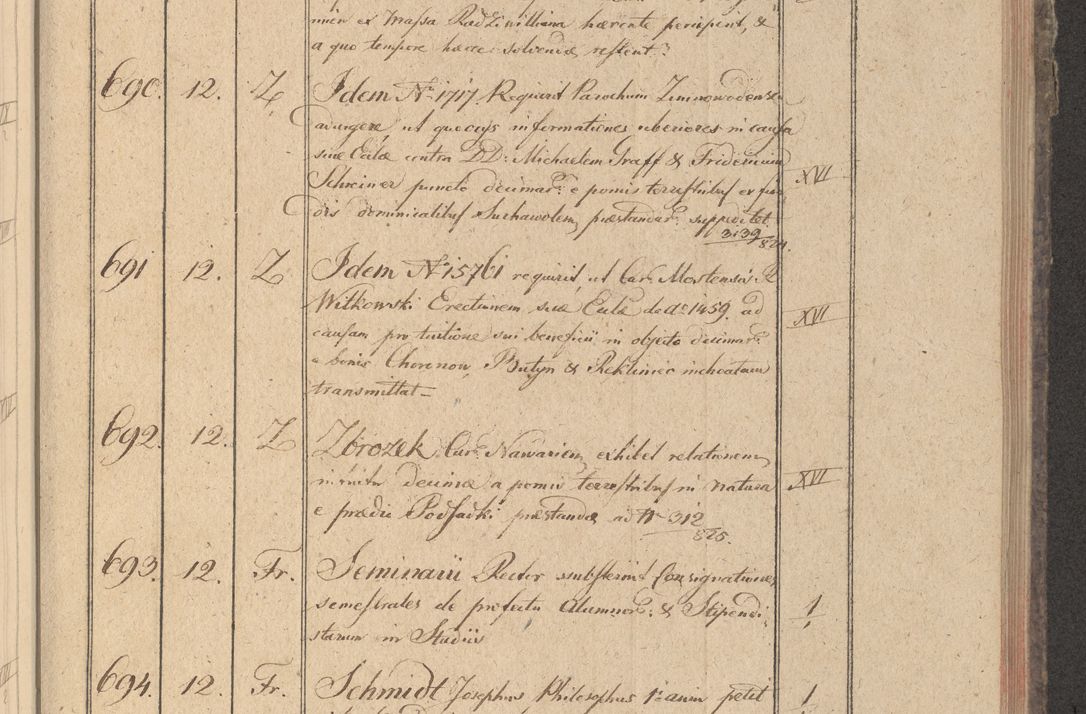 men ex Massa Radziwilliana hærente percipient, &
a quo tempore hæ solvendæ restent?
690. 12. Z Idem No 1717. Requirit Parochum Zimnowodensem
ut quocys informationes uberiores in causa
suæ Eccl&æ contra DD: Michaelem Graff & Fridericum
Schreiner puncto decimar: e pomis terrestribus ex fun XVI
dis dominicalibus Suchawolen, præstandar: suppeditet
3139/824.
691 12. Z Idem No 15761 requirit, ut Car. Mostensis R
Witkowski Erectionem suæ Eccle de Ao 1459. ad XVI
causam pro tuitione sui beneficii in objecto decimar:
e bonis Choronow, Butyn & Rekliniec inchoatam
transmittat
692. 12. Z Zbrozek Cur: Nawarien, exhibet relationem
intuitu decimæ a pomis terrestribus in natura XVI
e prædio Podsadki præstandæ ad No 312
825.
693. 12. Fr. Seminarii Rector substernit Consignationes
semestrales de profectu Alumnor: & Stipendi- 1
starum in Studiis
694. 12. Fr. Schmidt Josephus Philosophus 1i anni petit 1